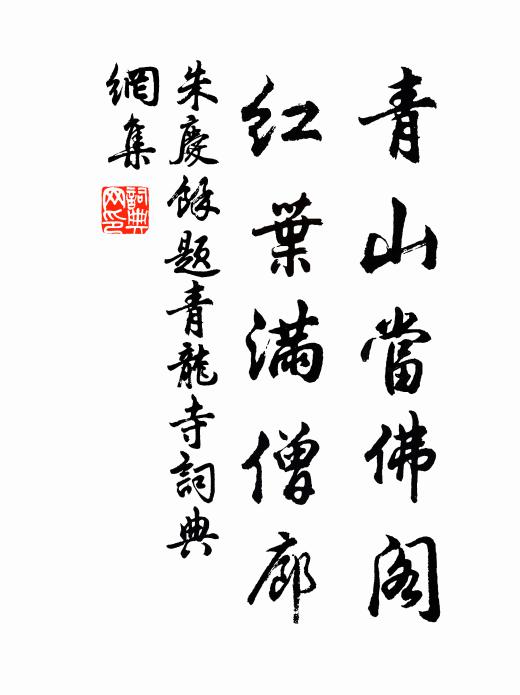 青山當佛阁
红葉滿僧廊
朱慶餘題青龍寺詞典
網集
詞典
网印